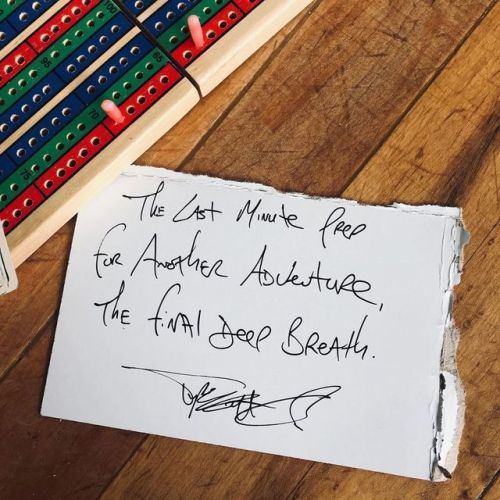 The Last Minute Prep
for Another Adventure,
The final Deep Breath.
85
70
75